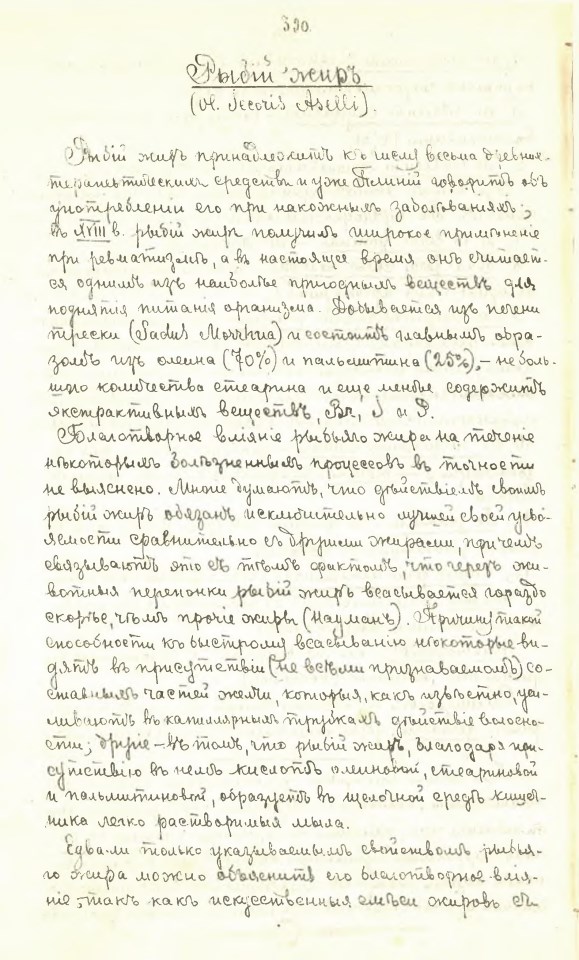 390.
Рыбій жиръ
(Ol. Jecoris Aselli).
Рыбій жиръ принадлежитъ къ числу весьма древнихъ
терапевтическихъ средствъ и уже Плиній говоритъ объ
употребленіи его при накожныхъ заболѣваніяхъ;
въ XVIII в. рыбій жиръ получилъ широкое примѣненіе
при ревматизмѣ, а въ настоящее время онъ считает-
ся однимъ изъ наиболѣе пригодныхъ веществъ для
поднятія питанія организма. Добывается изъ печени
трески (Gadus Morrhua) и состоитъ главнымъ обра-
зомъ изъ олеина (70%) и пальмитина (25%), – не боль-
шого количества стеарина и еще менѣе содержитъ
экстрактивныхъ веществъ, Br, J и P.
Благотворное вліяніе рыбьяго жира на теченіе
нѣкоторыхъ болѣзненныхъ процессовъ въ точности
не выяснено. Многіе думаютъ, что дѣйствіемъ своимъ
рыбій жиръ обязанъ исключительно лучшей своей усво-
яемости сравнительно съ другими жирами, при чемъ
связываютъ это съ тѣмъ фактомъ, что черезъ жи-
вотныя перепонки рыбій жиръ всасывается гораздо
скорѣе, чѣмъ прочіе жиры (Науманъ). Причину такой
способности къ быстрому всасыванію нѣкоторые ви-
дятъ въ присутствіи (не всѣми признаваемомъ) со-
ставныхъ частей желчи, которыя, какъ извѣстно, уси-
ливаютъ въ капиллярныхъ трубкахъ дѣйствіе волосно-
сти; другіе – въ томъ, что рыбій жиръ, благодаря при-
сутствію въ немъ кислотъ олеиновой, стеариновой
и пальмитиновой, образуетъ въ щелочной средѣ кишеч-
ника легко растворимыя мыла.
Едва ли только указываемымъ свойствомъ рыбья-
го жира можно объяснить его благотворное влія-
ніе, такъ какъ искусственныя смѣси жировъ съ